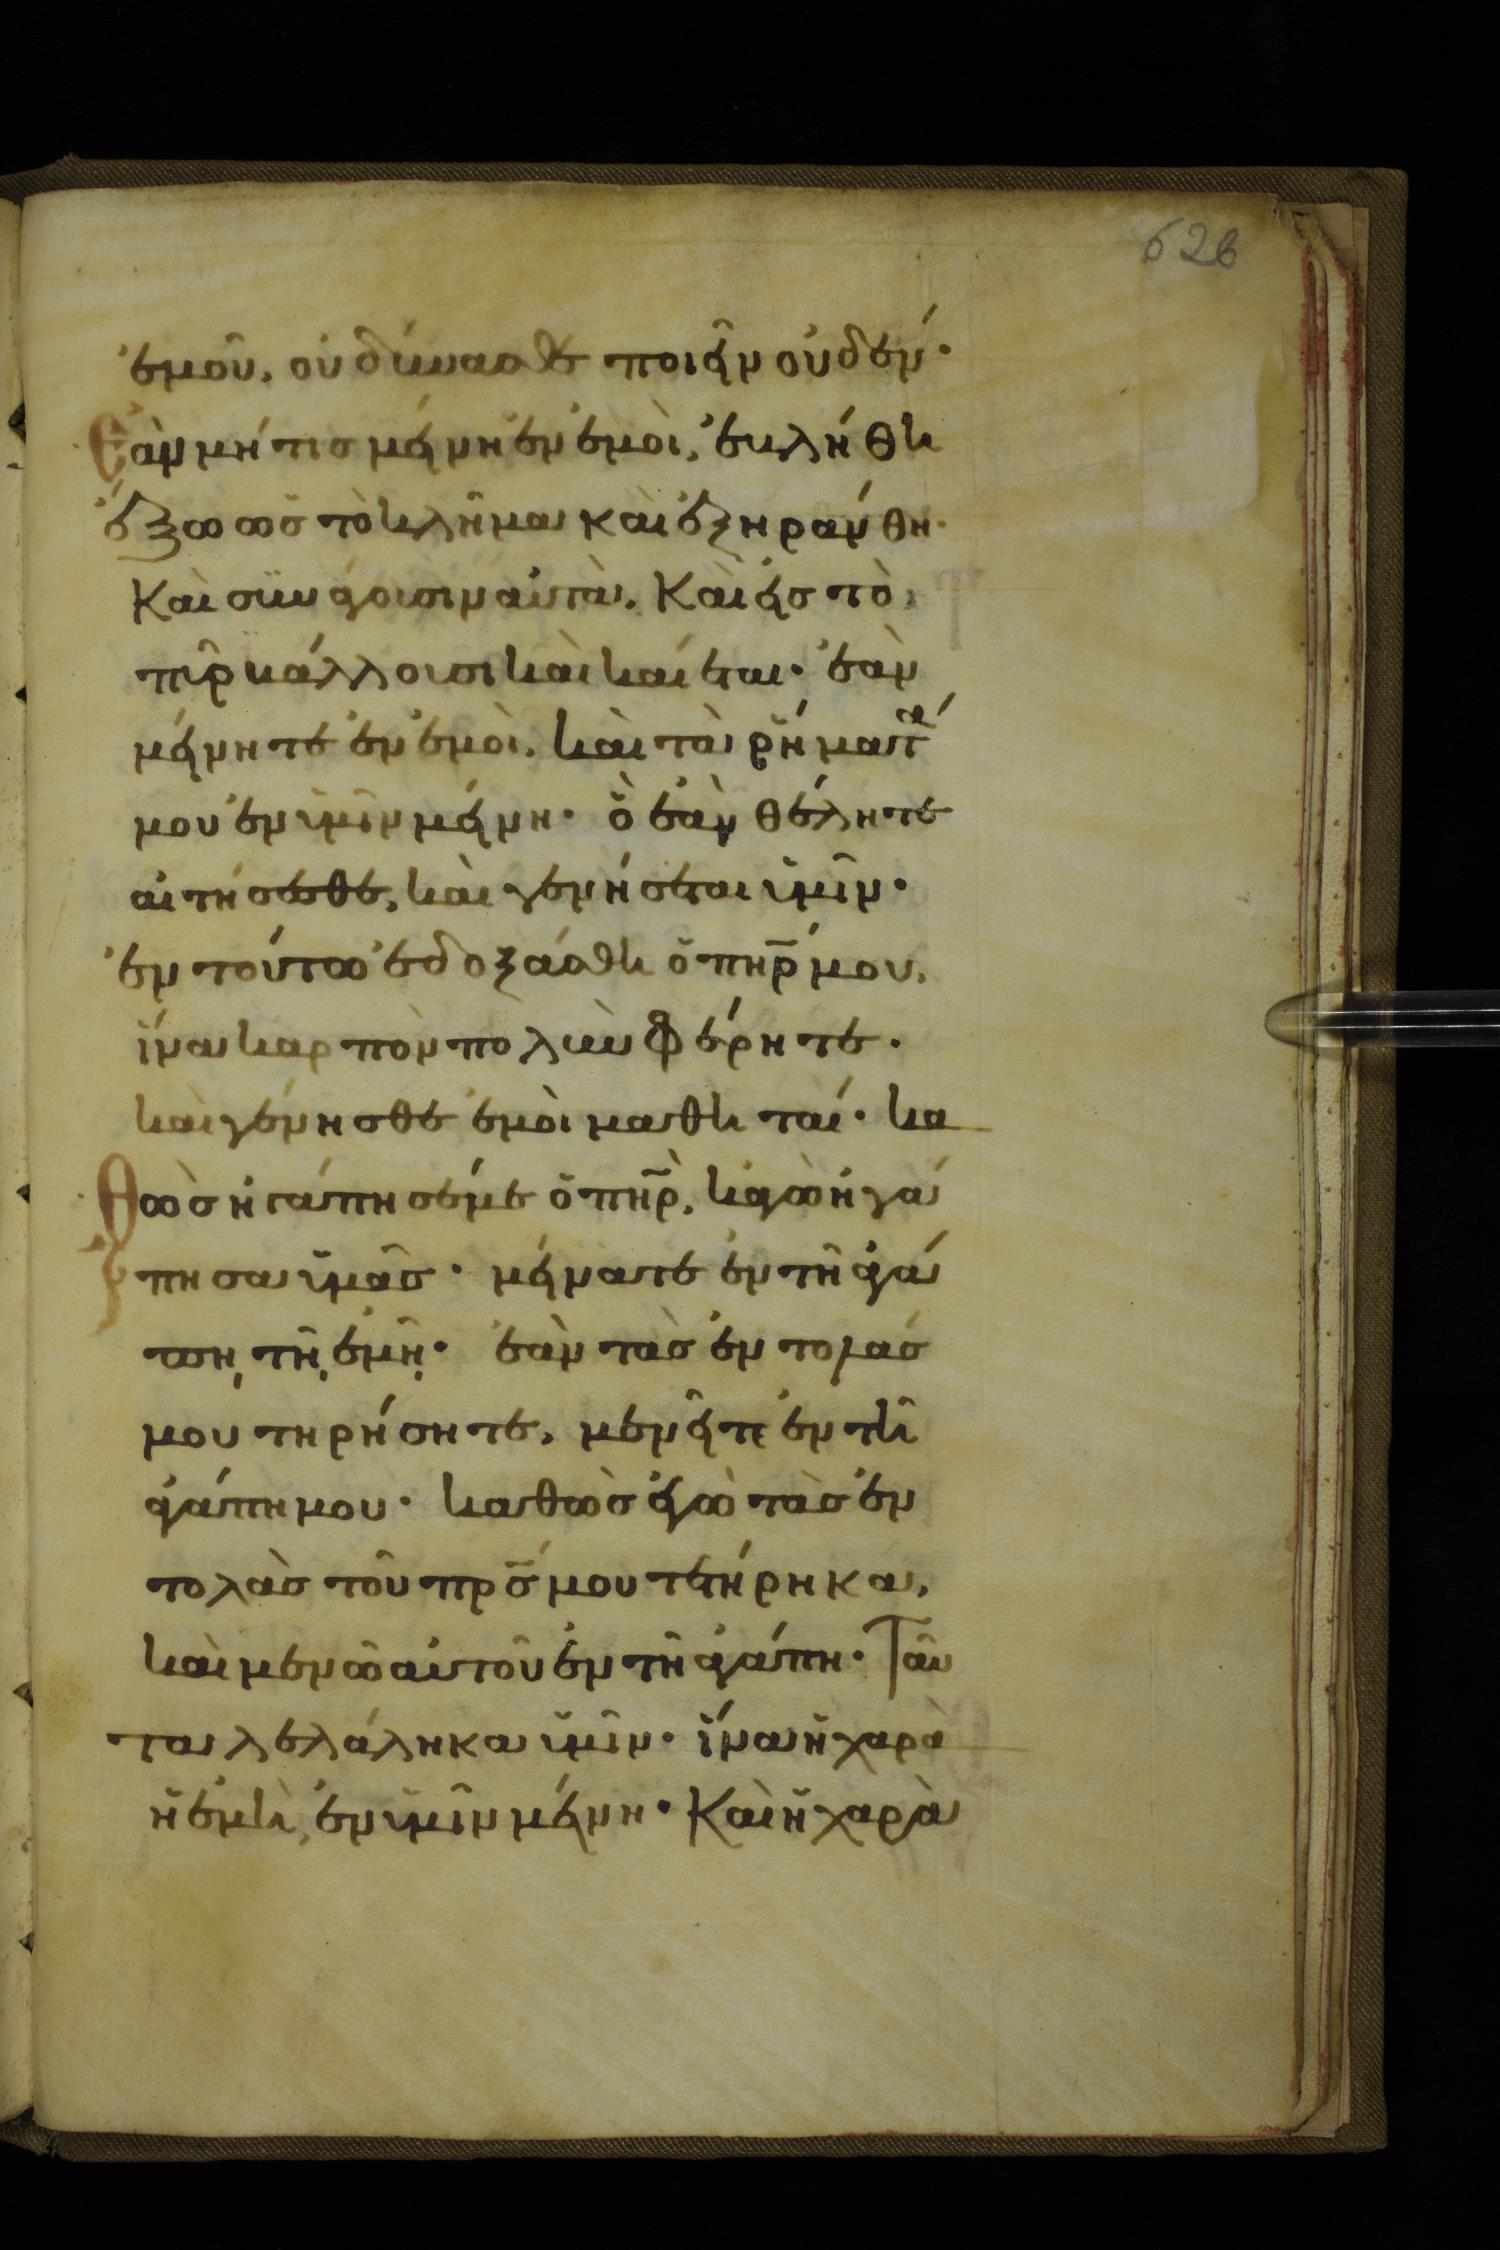 62β
ἐμοῦ, οὐ δύνασθε ποιεῖν οὐδέν·
Ἐὰν μή τις μείνη ἐν ἐμοὶ, ἐκλήθη
ἔξω ὡς τὸ κλῆμα καὶ ἐξηράνθη·
Καὶ συνάγουσιν αὐτὰ, Καὶ εἰς τὸ
πῦρ κάλλουσι καὶ καίεται· ἐὰν
μείνητε ἐν ἐμοὶ, καὶ τὰ ῥήματά
μου ἐν ὑμῖν μείνη· ὃ ἐὰν θέλητε
αἰτήσεσθε, καὶ γενήσεται ὑμῖν·
ἐν τούτω ἐδοξάσθη ὁ πηρ̅ μου,
ἵνα καρπὸν πολὺν φέρητε·
καὶ γένησθε ἐμοὶ μαθηταί· κα
θὼς ἠγάπησέ με ὁ πηρ̅, κἀγὼ ἠγά
πησα ὑμᾶς· μείνατε ἐν τῆ ἀγά
πῃ τῇ ἐμῇ· ἐὰν τὰς ἐντολάς
μου τηρήσητε, μενεῖτε ἐν τῆ
ἀγάπη μου· καθὼς ἐγὼ τὰς ἐν
τολὰς τοῦ πρς̅ μου τετήρηκα,
καὶ μενῶ αὐτοῦ ἐν τῆ ἀγάπη· Ταῦ
τα λελάληκα ὑμῖν· ἵνα ἡ χαρὰ
ἡ ἐμὴ, ἐν ὑμῖν μείνη· Καὶ ἡ χαρὰ